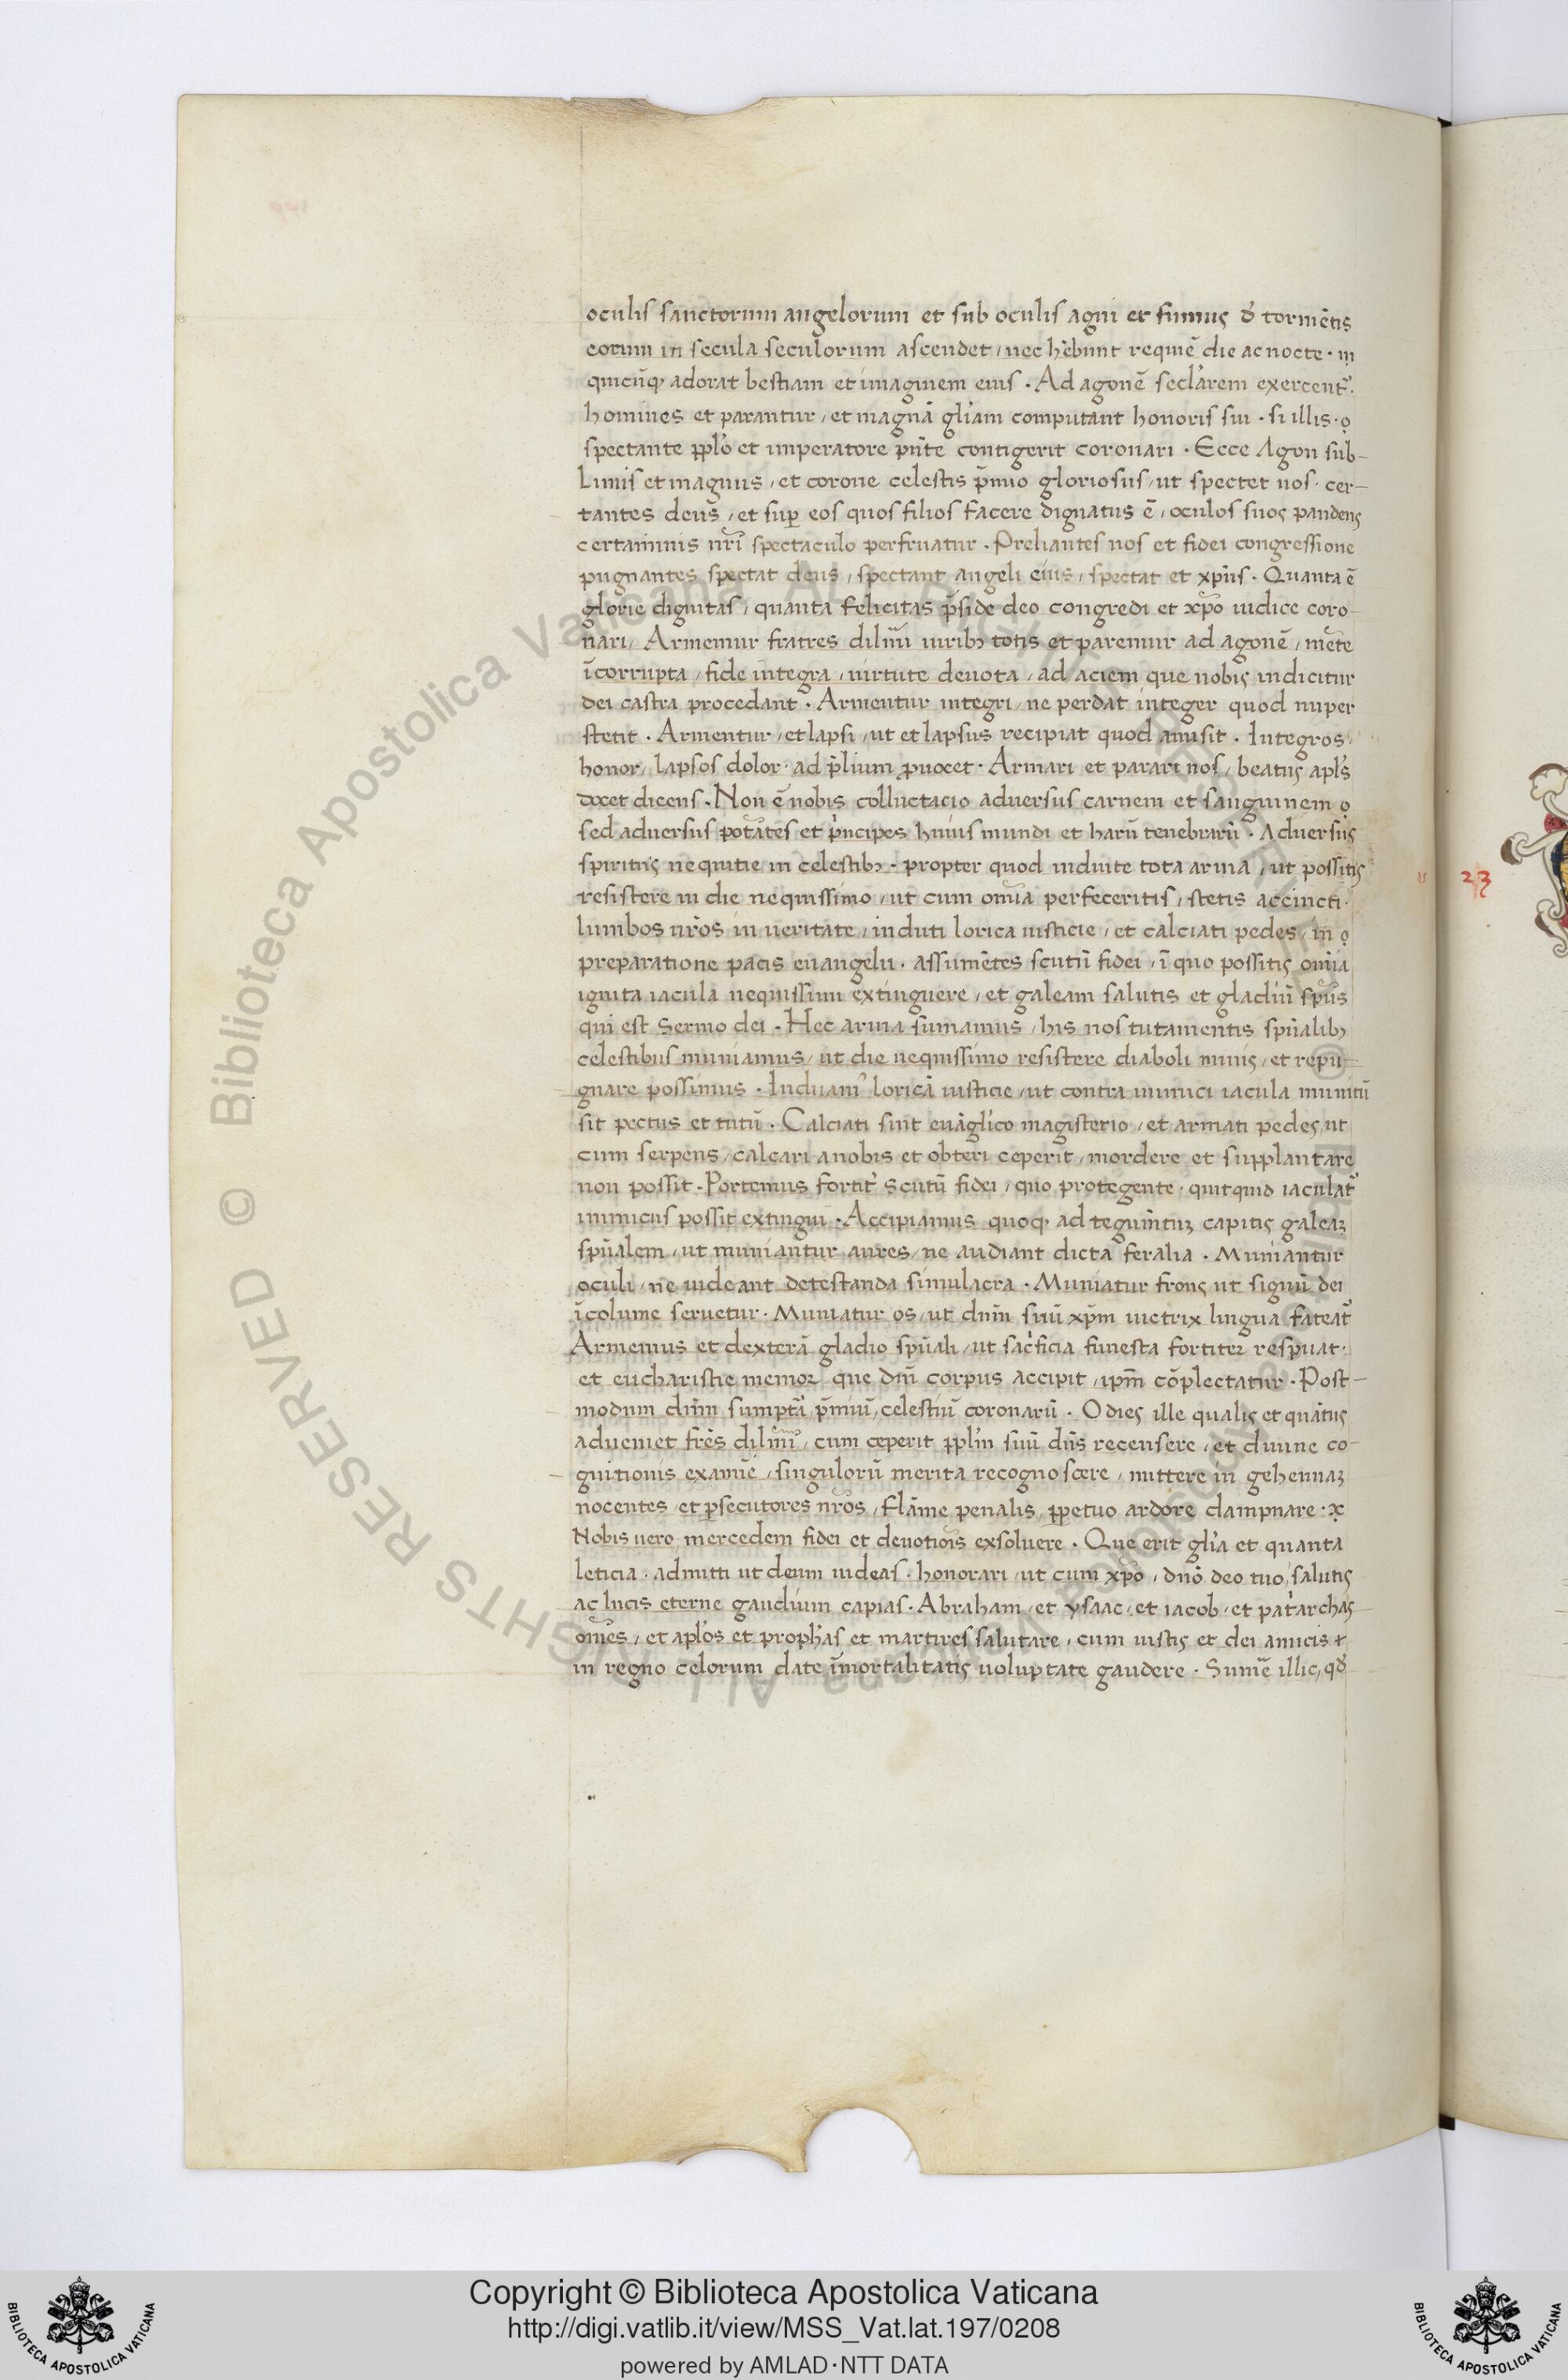 oculis sanctorum angelorum et sub oculis agni et fumus d̕ tormētis
eorum in secula seculorum ascendet / nec hēbunt requiē die ac nocte ·
quicūqꝫ adorat bestiam et imaginem eius · Ad agonē sec̄larem exercent᷑
homines et parantur / et magnā gl̄iam computant honoris sui · si illis ·
spectante pp̄lo et imperatore pn̄te contigerit coronari · Ecce Agon sub-
limis et magnus / et corone celestis p̄mio gloriosus / ut spectet nos · cer-
tantes deus / et suꝑ eos quos filios facere dignatus ē / oculos suos pandens
certaminis nr̄i spectaculo perfruatur · Preliantes nos et fidei congressione
pugnantes spectat deus / spectant angeli eius / spectat et xp̄us · Quanta ē
glorie dignitas / quanta felicitas p̄side deo congredi et xp̄o iudice coro-
nari / Armemur fratres dil̄mi uiribꝫ totis et paremur ad agonē / mēte
īcorrupta / fide integra / uirtute deuota / ad aciem que nobis indicitur
dei castra procedant · Armentur integri / ne perdat integer quod nuper
stetit · Armentur / et lapsi / ut et lapsus recipiat quod amisit · Integros /
honor / lapsos dolor · ad p̄lium ꝓuocet · Armari et parari nos / beatus apl̄s
docet dicens · Non ē nobis colluctacio aduersus carnem et sanguinem
sed aduersus potātes et p̄ncipes huius mundi et harū tenebrarū · Aduersus
spiritus nequitie in celestibꝫ · propter quod induite tota arma / ut possitis
resistere in die nequissimo / ut cum om̄ia perfeceritis / stetis accincti ·
lumbos nr̄os in ueritate / induti lorica iusticie / et calciati pedes / in
preparatione pacis euangelii · assumētes scutū fidei / ī quo possitis om̄ia
ignita iacula nequissimi extinguere / et galeam salutis et gladiū sp̄us
qui est sermo dei · Hec arma sumamus / his nos tutamentis sp̄ualibꝫ
celestibus muniamus / ut die nequissimo resistere diaboli minis / et repu-
gnare possimus · Induam᷒ loricā iusticie / ut contra inimici iacula munitū
sit pectus et tutū · Calciati sint euāgl̄ico magisterio / et armati pedes / ut
cum serpens / calcari a nobis et obteri ceperit / mordere et supplantare
non possit · Portemus fortit̕ scutū fidei / quo protegente · quitquid iaculat᷑
inimicus possit extingui · Accipiamus quoqꝫ ad tegumn̄tuꝫ capitis galeaꝫ
sp̄ualem / ut muniantur aures / ne audiant dicta feralia · Muniantur
oculi / ne uideant detestanda simulacra · Muniatur frons ut signū dei
īcolume seruetur · Muniatur os / ut dn̄m suū xp̄m uictrix lingua fateat᷑
Armemus et dexterā gladio sp̄uali / ut sac̄ficia funesta fortiter respuat ·
et eucharistie memor que dn̄i corpus accipit / ip̄m cōplectatur · Post-
modum dn̄m sumptā p̄miū / celestiū coronarū · O dies ille qualis et quātus
adueniet fr̄es dil̄mi / cum ceperit pp̄lm suū dn̄s recensere / et diuine co-
gnitionis examīe / singulorū merita recognoscere / mittere in gehennaꝫ
nocentes / et ꝑsecutores nr̄os / flāme penalis / ꝑpetuo ardore dampnare ·
Nobis uero mercedem fidei et deuotiōis exsoluere · Que erit gl̄ia et quanta
leticia · admitti ut deum uideas · honorari / ut cum xp̄o / dn̄o deo tuo / salutis
ac lucis eterne gaudium capias · Abraham / et ysaac / et iacob / et pat̄archas
om̄es / et apl̄os et prophas et martires salutare / cum iustis et dei amicis
in regno celorum date īmortalitatis uoluptate gaudere · Sumē illic / qd̕
23
Copyright © Biblioteca Apostolica Vaticana
http://digi.vatlib.it/view/MSS_Vat.lat.197/0208
powered by AMLAD·NTT DATA
BIBLIOTECA APOSTOLICA VATICANA
BIBLIOTECA APOSTOLICA VATICANA